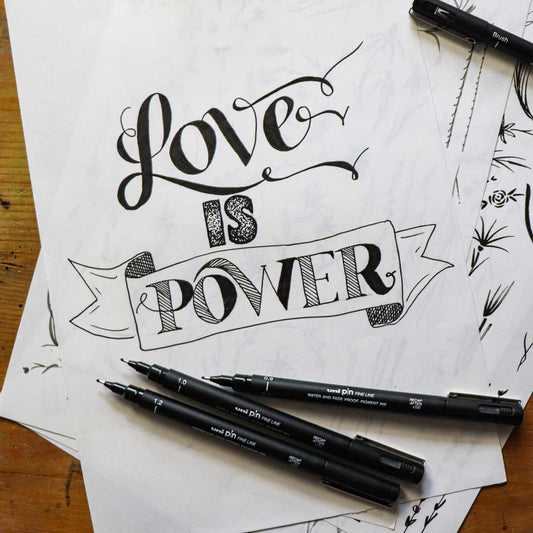 Brush
Love
IS
POWER
0.9
uni pin FINE LINE
WATER AND FADE PROOF, PIGMENT INK
RECAP
AFTER
USE
1.0
uni pin FINE LINE
RECAP
AFTER
USE
1.2
uni pin FINE LINE
RECAP
AFTER
USE